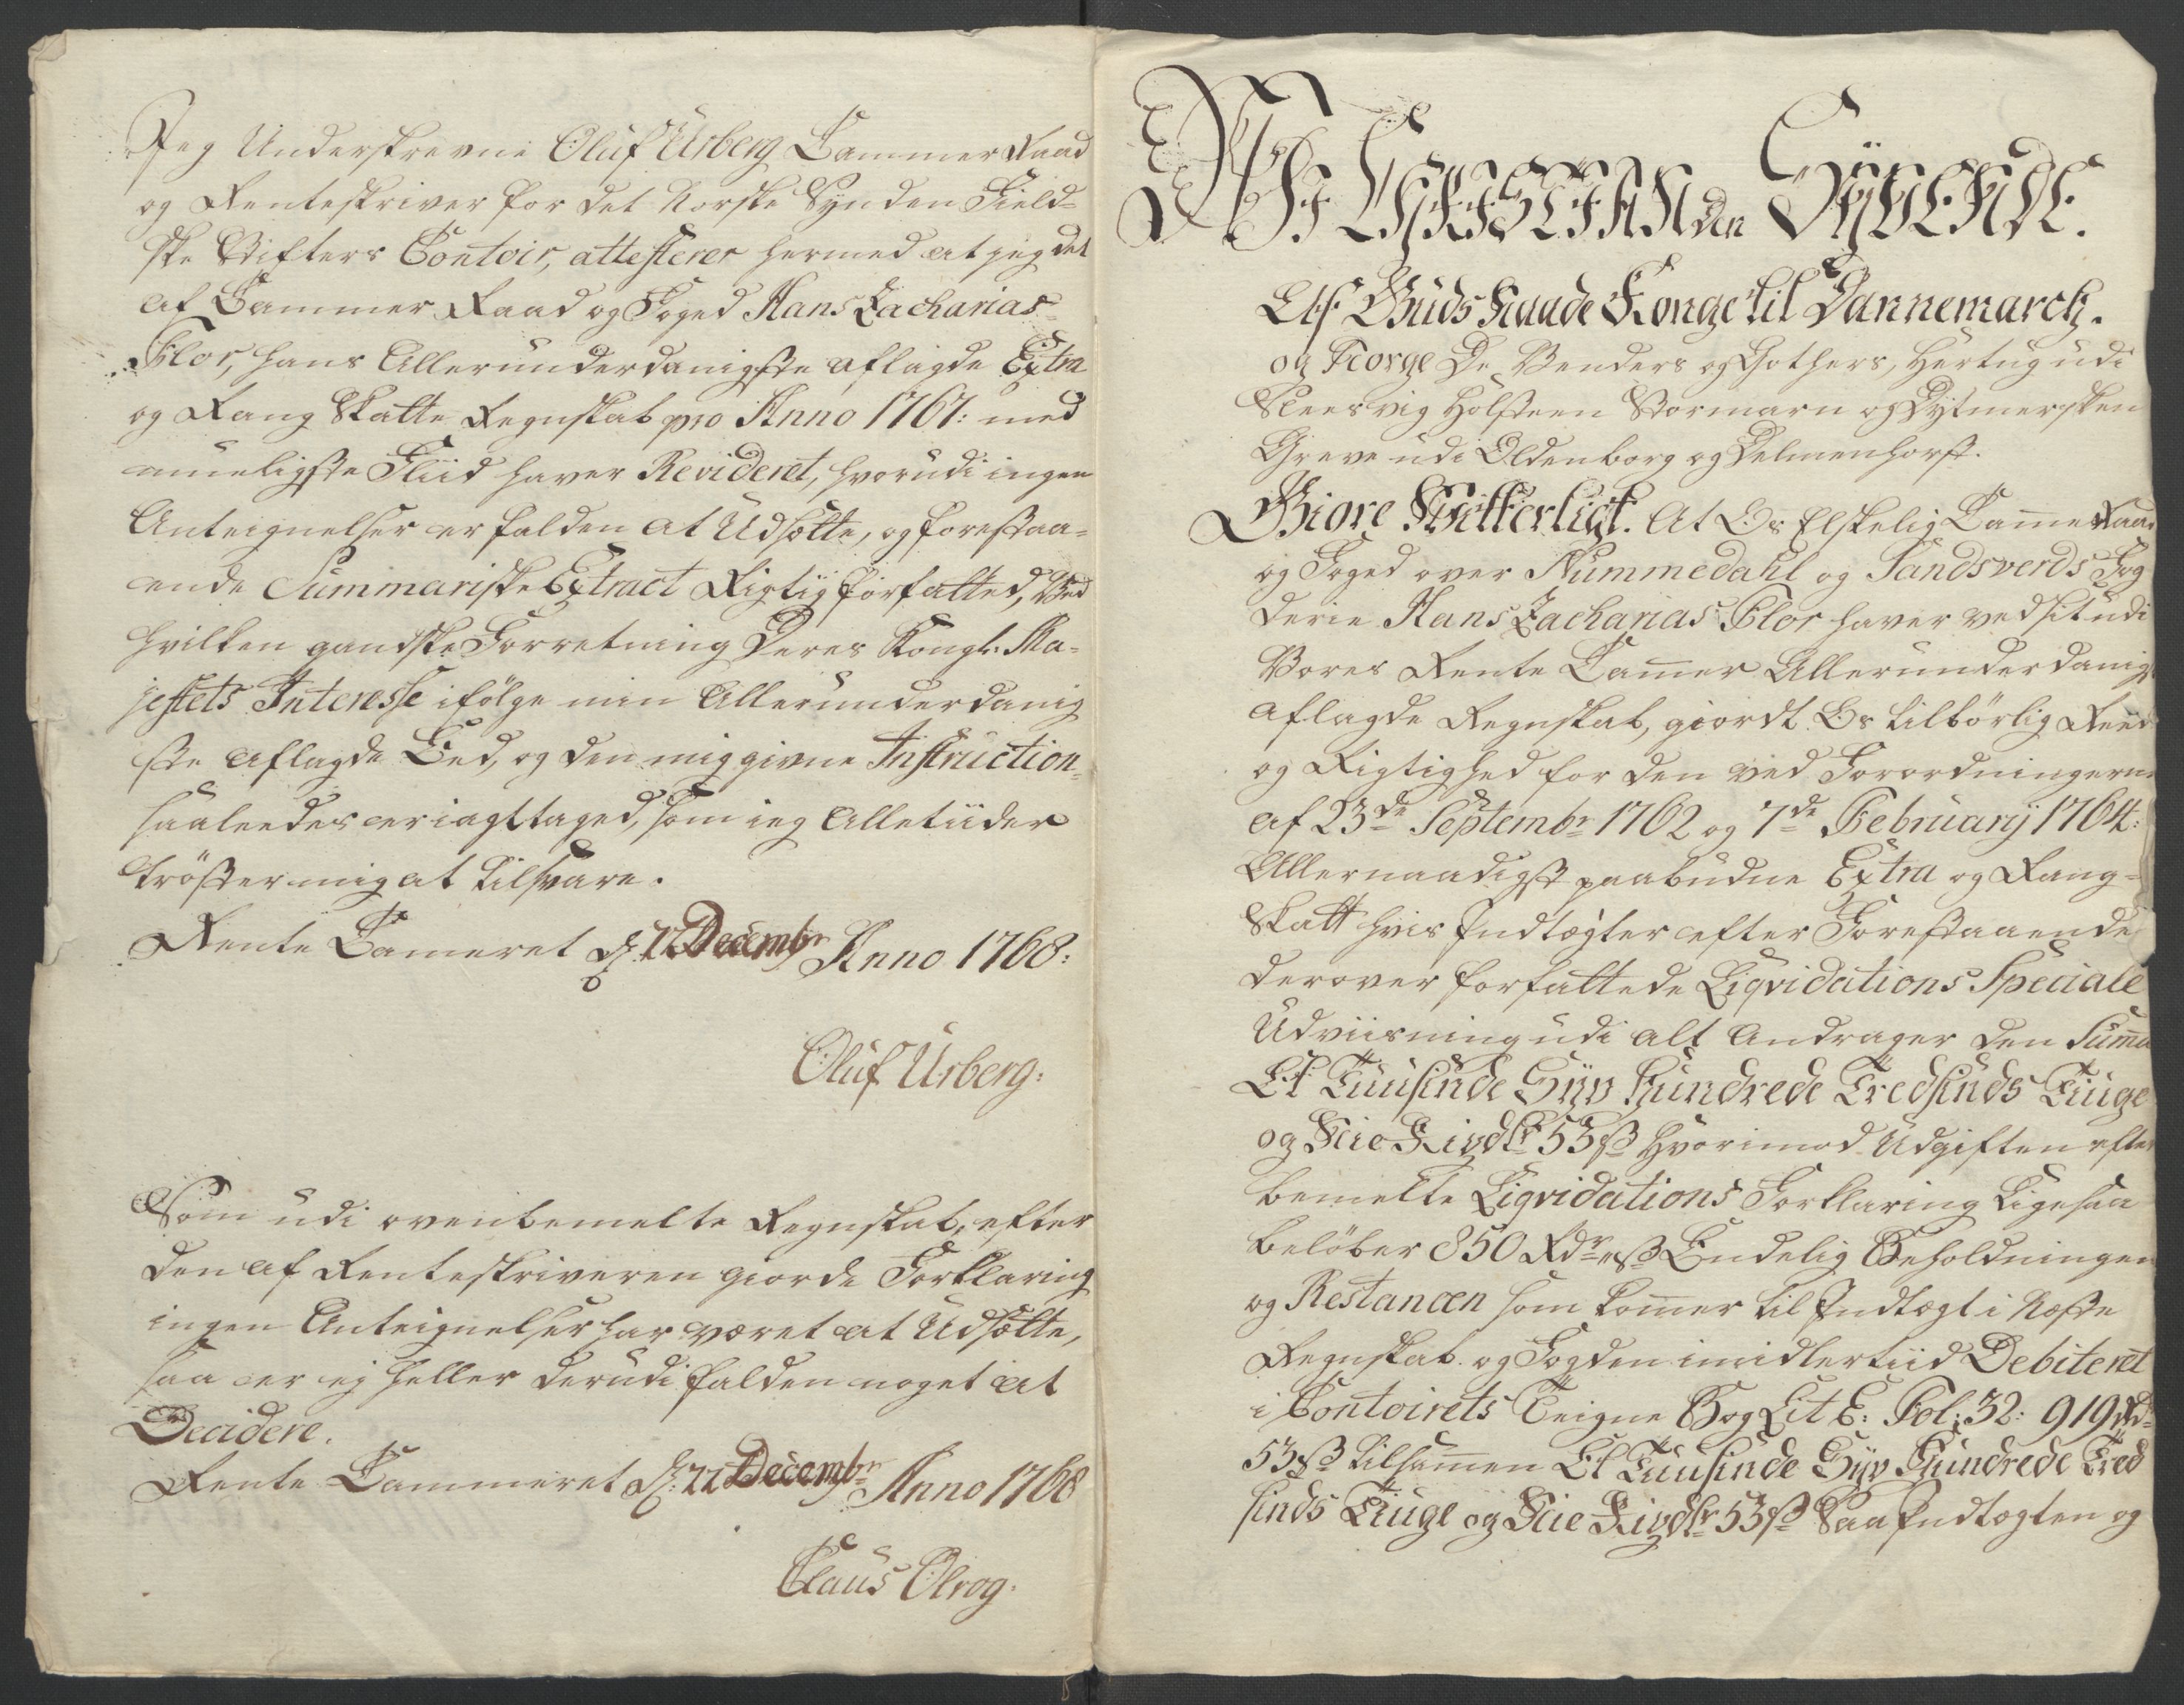 Jeg Underskrevne Oluf Urberg Cammer Raad
og Renteskriver for det Norske Synden Field-
ske Stifters Contoir, attesterer hermed at jeg det
af Cammer Raad og Foged Hans Zacharias
Flor, hans Allerunderdanigste aflagde Extra
og Rang Skatte Regnskab pro Anno 1767: med
mueligste Fliid haver Revideret, hvorudi ingen
Anteignelser er falden at Udsætte, og forestaa-
ende Summariske Extract Rigtig forfatted, Ved
hvilken gandske Forretning Deres Kongl. Ma-
jestets Interesse ifølge min Allerunderdanig
ste aflagde Eed, og den mig givne Instruction
saaledes er iagttaged, som ieg Alletiider
trøster mig at tilsvare.
Rente Cameret d: 22 Decembr Anno 1768:
Oluf Urberg.
Som udi ovenbemelte Regnskab, efter
den af Renteskriveren giorde Forklaring
ingen Anteignelser har været at Udsætte,
saa er ej heller derudi falden noget at
Decidere.
Rente Cammeret d: 22 Decembr Anno 1768
Claus Olrog.
Vi Christian den Syvende.
Af Guds Naade Konge til Dannemarck.
og Norge De Venders og Gothers, Hertug udi
Sleesvig Holsteen Stormarn og Dytmersken
Greve udi Oldenborg og Delmenhorst.
Giøre Vitterligt. At Os Elskelig Cammer Raad
og Foged over Nummedahl og Sandsverds Fog
derie Hans Zacharias Flor haver ved sit udi
Vores Rente Cammer Allerunderdanigst
aflagde Regnskab, giordt Os tilbørlig Reed
og Rigtighed for den ved Forordningerne
af 23de Septembr 1762 og 7de February 1764:
Allernaadigst paabudne Extra og Rang-
Skatt hvis Indtægter efter Forestaaende
derover forfattede Liqvidations Speciale
Udviisning udi alt Andrager den Summa
Et Tuusinde Syv Hundrede Tredsinds Tiuge
og Nie Rixdlr 53 ß Hvorimod Udgiften efter
bemelte Liqvidations Forklaring Ligesaa
beløber 850 Rdr " ß Endelig Beholdningen
og Restancen som komer til Indtægt i Næste
Regnskab og Fogden imidlertiid Debiteret
i Contoirets Teigne Bog Lit E: Fol: 32: 919 Rd
53 ß tilsammen Et Tuusinde Syv Hundrede Tred
sinds Tiuge og Nie Rixdlr 53 ß Saa Indtægten og